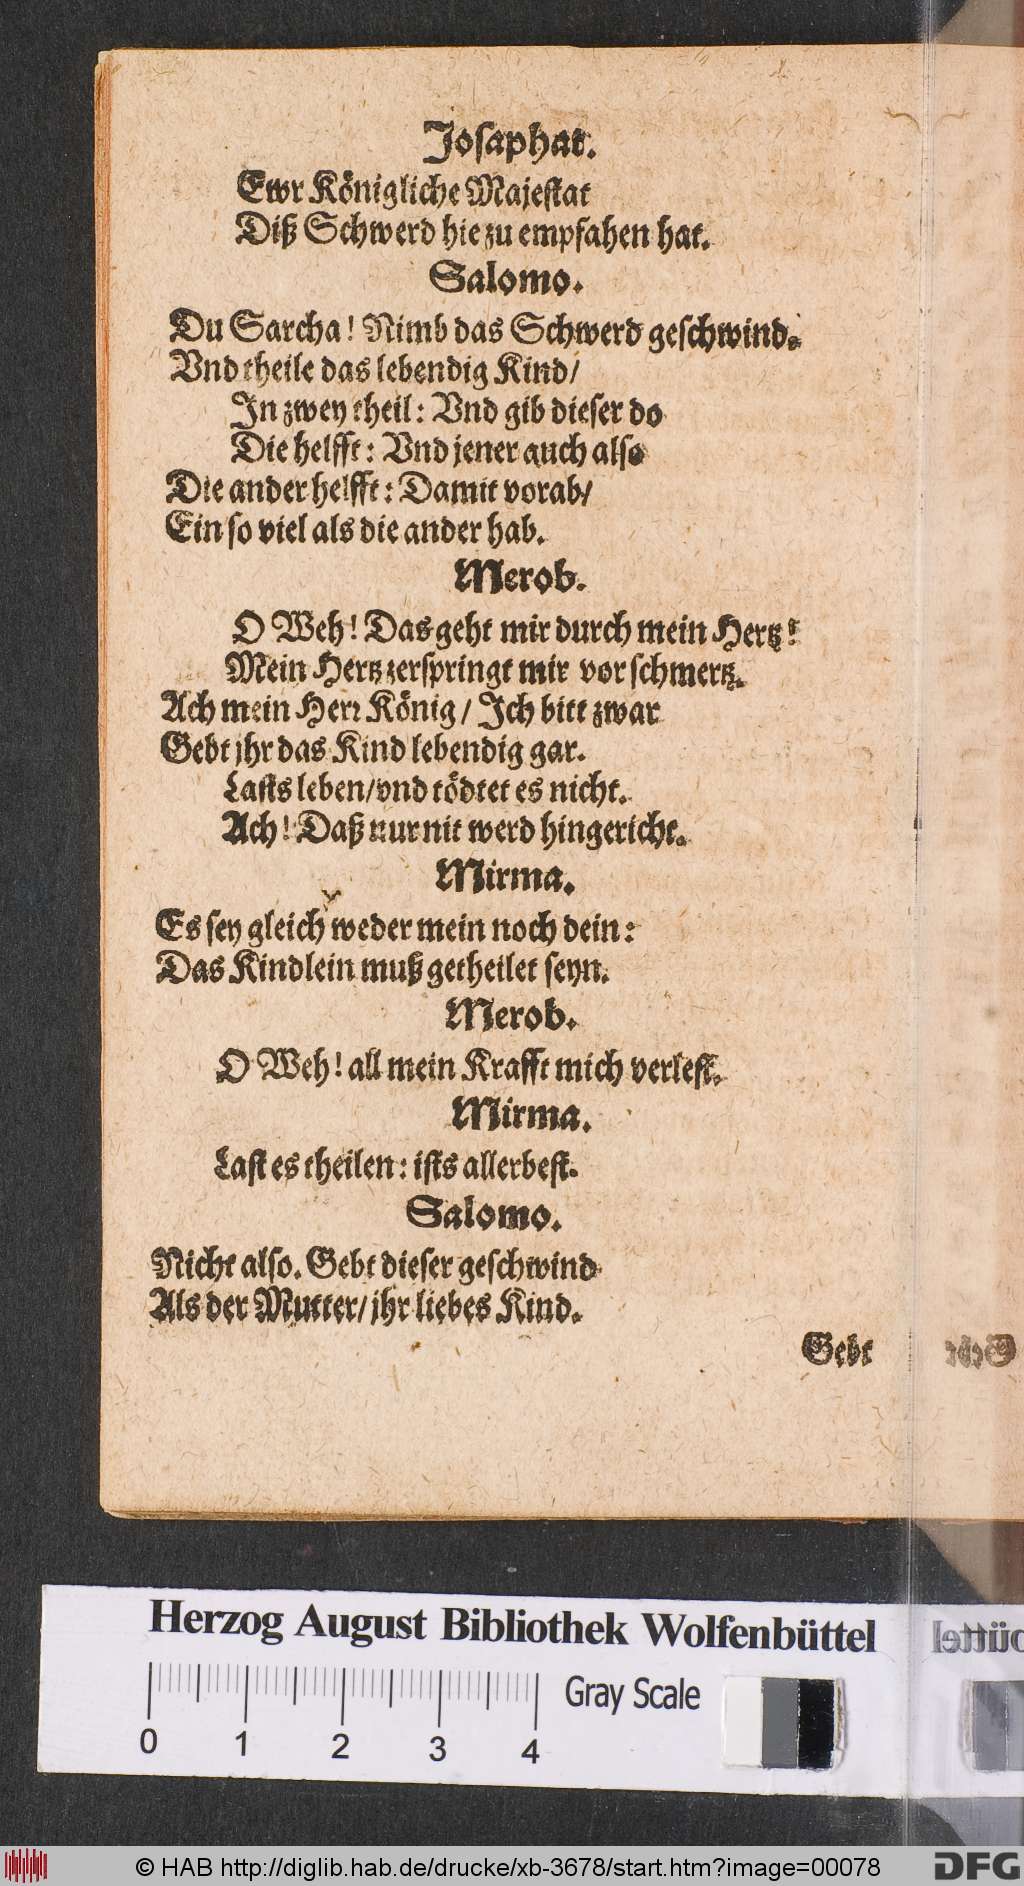 Josaphat.
Ewr Königliche Majestat
Diß Schwerd hie zu empfahen hat.
Salomo.
Du Sarcha! Nimb das Schwerd geschwind.
Vnd theile das lebendig Kind/
In zwey theil: Vnd gib dieser do
Die helfft: Vnd jener auch also
Die ander helfft: Damit vorab/
Ein so viel als die ander hab.
Merob.
O Weh! Das geht mir durch mein Hertz!
Mein Hertz zerspringt mir vor schmertz.
Ach mein Herr König/ Ich bitt zwar
Gebt jhr das Kind lebendig gar.
Lasts leben/vnd tödtet es nicht.
Ach! Daß nur nit werd hingericht.
Mirma.
Es sey gleich weder mein noch dein:
Das Kindlein muß getheilet seyn.
Merob.
O Weh! all mein Krafft mich verlest.
Mirma.
Last es theilen: ists allerbest.
Salomo.
Nicht also. Gebt dieser geschwind
Als der Mutter/ jhr liebes Kind.
Gebt
Herzog August Bibliothek Wolfenbüttel
Gray Scale
0 1 2 3 4
© HAB http://diglib.hab.de/drucke/xb-3678/start.htm?image=00078
DFG